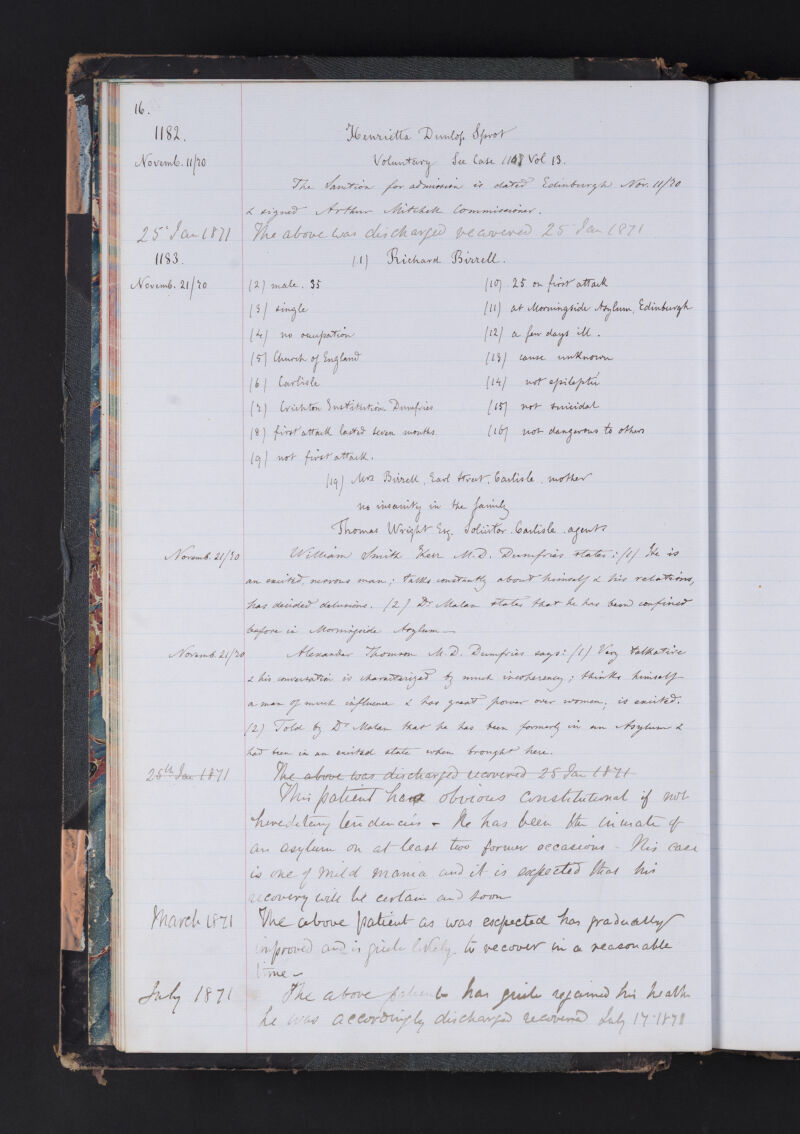 16.
1182. Henrietta Dunlop Sprot
Novemb. 11/70 Voluntary See Case Vol 13.
The Sanction for admission is dated Edinburgh Nov. 11/70
& signed Arthur Mitchell Commissioner.
25 Jan 1871 The above was discharged recovered 25 Jan 1871
1183. (1) Richard Birrell.
Novemb. 21/70 (2) male. 35 (10) 25 on first attack
(3) single (11) at Morningside Asylum, Edinburgh
(4) no occupation (12) a few days ill.
(5) Church of England (13) cause unknown
(6) Carlisle (14) not epileptic
(7) Crichton Institution Dumfries (15) not suicidal
(8) first attack lasted seven months (16) not dangerous to others
(9) not first attack.
(19) Mrs Birrell, Earl Street, Carlisle, mother
no insanity in the family
Thomas Wright Esq. Solicitor. Carlisle. agent
Novemb. 21/70 William Smith Kerr M.D. Dumfries states: (1) He is
an excited, nervous man; talks constantly about himself & his relations,
has decided delusions. (2) Dr Malan states that he has been confined
before in Morningside Asylum
Novemb. 21/70 Alexander Thomson M.D. Dumfries says: (1) Very talkative
& his conversation is characterized by much incoherency; thinks himself
a man of much influence & has great power over women; is excited.
(2) Told by Dr Malan that he has been formerly in an Asylum &
had been in an excited state when brought here.
25th Jan 1871 The above was discharged recovered 25 Jan 1871
This patient has obvious constitutional if not
hereditary tendencies - He has been the inmate of
an asylum on at least two former occasions - His case
is one of mild mania and it is expected that his
recovery will be certain and soon
March 1871 The above patient as was expected has gradually
improved and is quite likely to recover in a reasonable
time -
July 1871 The above patient has quite regained his health
he was accordingly discharged recovered July 17. 1871